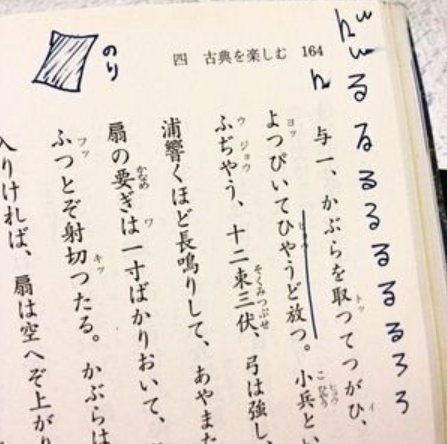 四 古典を楽しむ 164
のり
るるるるるるるろろ
与一、かぶらを取つてつがひ、
よつぴいてひやうど放つ。小兵と
ふぢやう、十二束三伏、弓は強し、
浦響くほど長鳴りして、あやまた
扇の要ぎは一寸ばかりおいて、
ふつとぞ射切つたる。かぶらは
入りければ、扇は空へぞ上がり